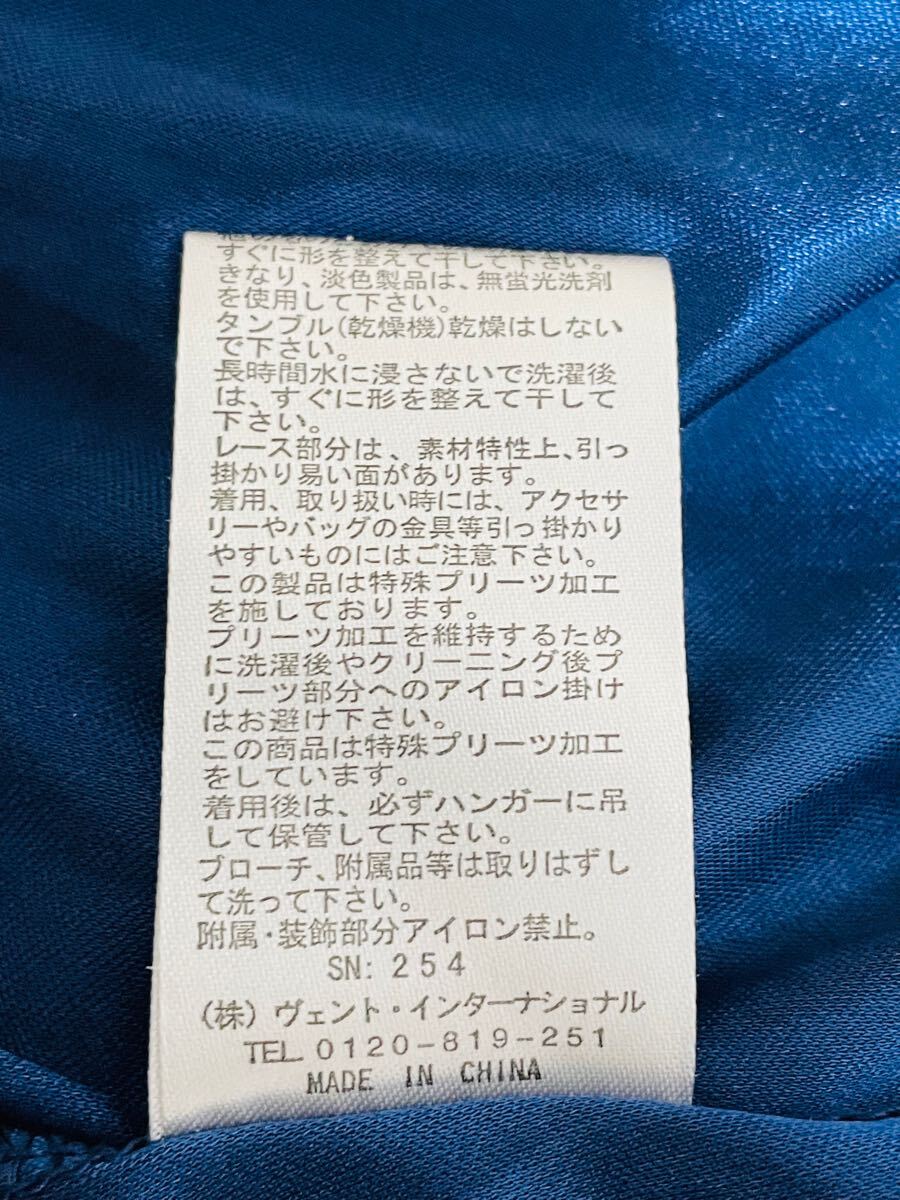 すぐに形を整えて干して下さい。
きなり、淡色製品は、無蛍光洗剤
を使用して下さい。
タンブル(乾燥機)乾燥はしない
で下さい。
長時間水に浸さないで洗濯後
は、すぐに形を整えて干して
下さい。
レース部分は、素材特性上、引っ
掛かり易い面があります。
着用、取り扱い時には、アクセサ
リーやバッグの金具等引っ掛かり
やすいものにはご注意下さい。
この製品は特殊プリーツ加工
を施しております。
プリーツ加工を維持するため
に洗濯後やクリーニング後プ
リーツ部分へのアイロン掛け
はお避け下さい。
この商品は特殊プリーツ加工
をしています。
着用後は、必ずハンガーに吊
して保管して下さい。
ブローチ、附属品等は取りはずし
て洗って下さい。
附属・装飾部分アイロン禁止。
SN: 254
(株)ヴェント・インターナショナル
TEL 0120-819-251
MADE IN CHINA